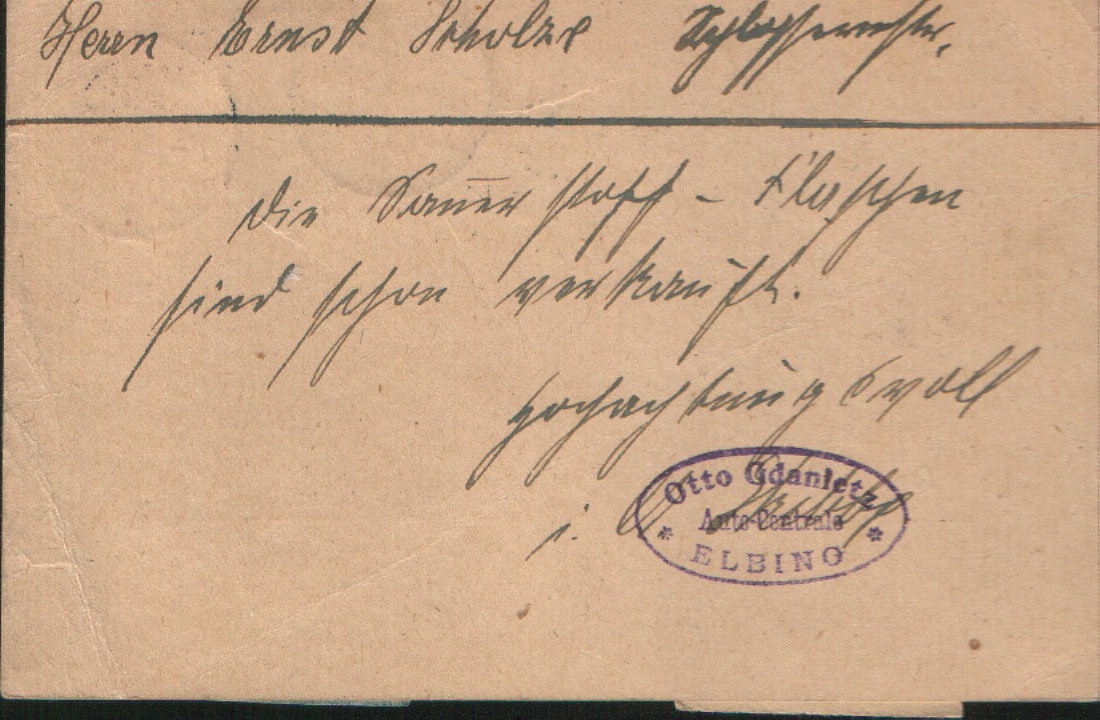 Herrn Ernst Scholze Schlossermstr.
Die Sauerstoff - Flaschen
sind schon verkauft.
Hochachtungsvoll
i.
Otto Gdanietz
Auto-Centrale
* ELBING *